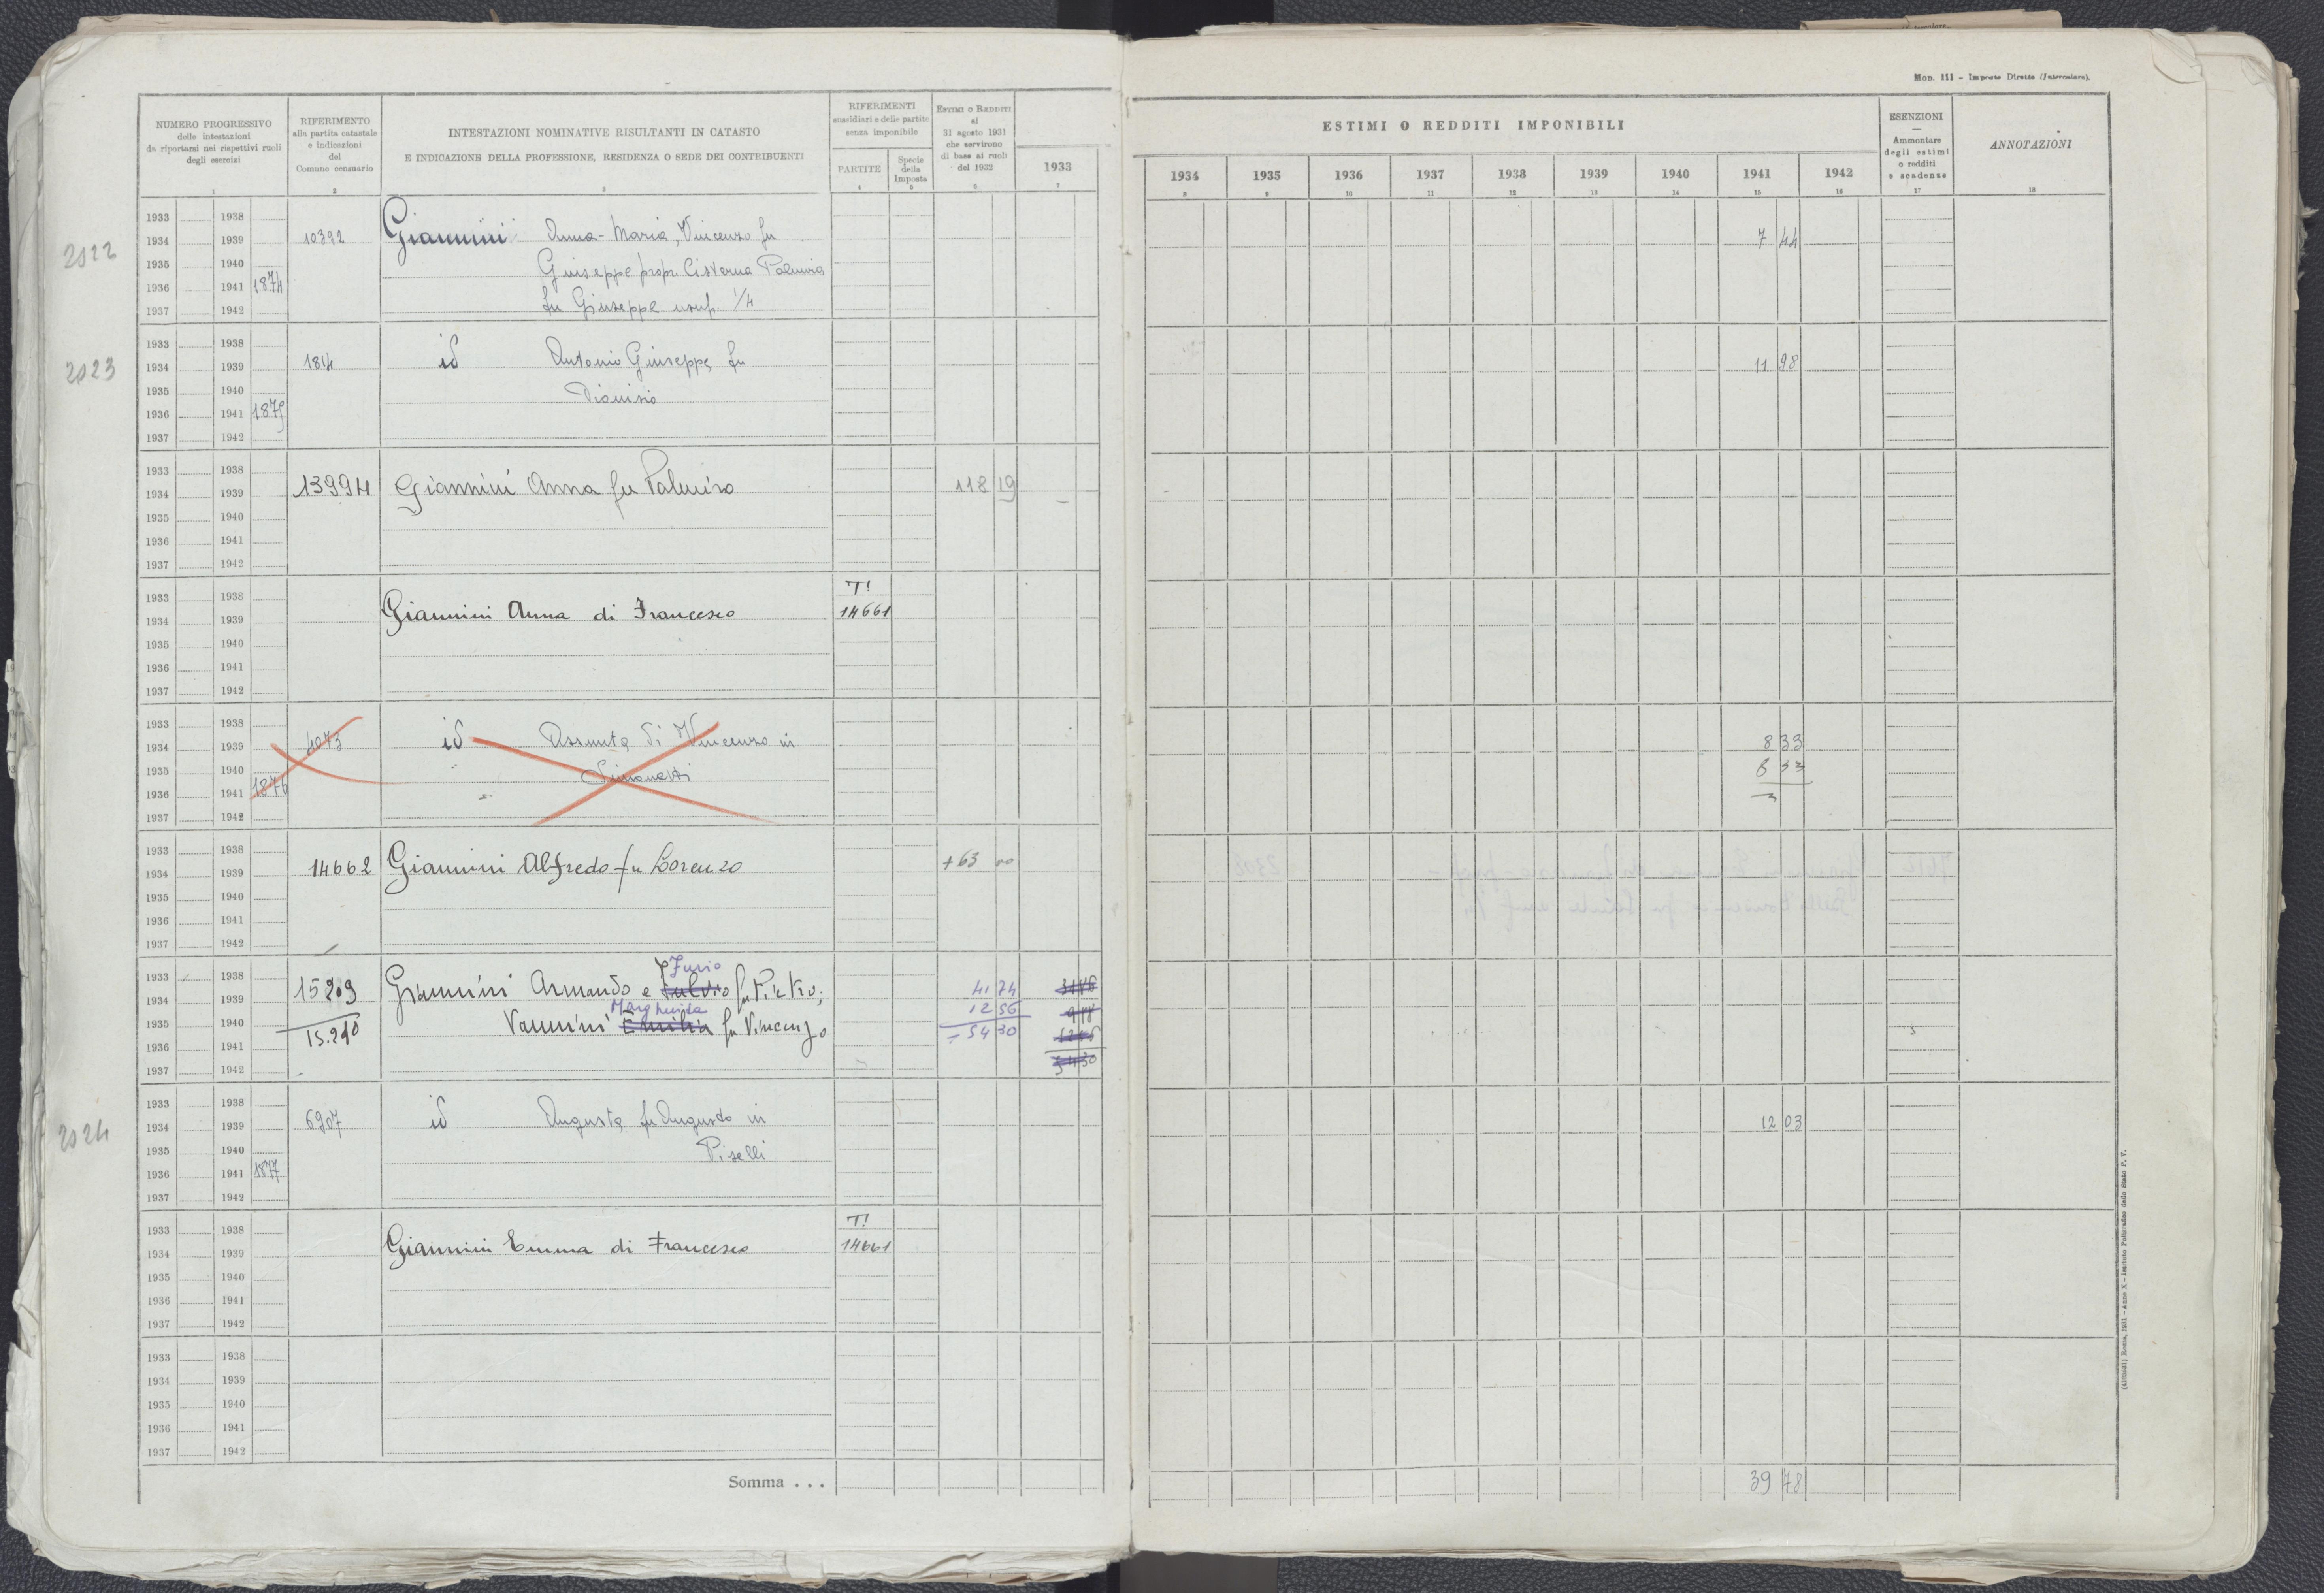 Mod. 111 - Imposte Dirette (Intercalare).
NUMERO PROGRESSIVO
delle intestazioni
da riportarsi nei rispettivi ruoli
degli esercizi
1
RIFERIMENTO
alla partita catastale
e indicazioni
del
Comune censuario
2
INTESTAZIONI NOMINATIVE RISULTANTI IN CATASTO
E INDICAZIONE DELLA PROFESSIONE, RESIDENZA O SEDE DEI CONTRIBUENTI
3
RIFERIMENTI
sussidiari e delle partite
senza imponibile
PARTITE
4
Specie
della
Imposta
5
ESTIMI O REDDITI
al
31 agosto 1931
che servirono
di base ai ruoli
del 1932
6
1933
7
ESTIMI O REDDITI IMPONIBILI
1934 1935 1936 1937 1938 1939 1940 1941 1942
8 9 10 11 12 13 14 15 16
ESENZIONI
—
Ammontare
degli estimi
o redditi
e scadenze
17
ANNOTAZIONI
18
1933 1938
2022 1934 1939 10392 Giannini Anna-Maria, Vincenzo fu 7 44
1935 1940 Giuseppe propr. Cisterna Palmira
1936 1941 1874 fu Giuseppe usuf. 1/4
1937 1942
1933 1938
2023 1934 1939 1814 id Antonio Giuseppe fu 11 98
1935 1940 Dionisio
1936 1941 1875
1937 1942
1933 1938
1934 1939 13994 Giannini Anna fu Palmiro 118 19 –
1935 1940
1936 1941
1937 1942
1933 1938 T!
1934 1939 Giannini Anna di Francesco 14661
1935 1940
1936 1941
1937 1942
1933 1938
1934 1939 4073 id Assunta di Vincenzo in 8 33
1935 1940 Simonetti 8 33
1936 1941 1876
1937 1942
1933 1938
1934 1939 14662 Giannini Alfredo fu Lorenzo +63 00
1935 1940
1936 1941
1937 1942
Furio
1933 1938
1934 1939 15209 Giannini Armando e Fulvio fu Pietro; 41 74
Margherita 12 56
1935 1940 15.210 Vannini Emilia fu Vincenzo 54 30
1936 1941
1937 1942 54 30
1933 1938
2024 1934 1939 6907 id Augusta fu Augusto in 12 03
1935 1940 Piselli
1936 1941 1877
1937 1942
1933 1938 T!
1934 1939 Giannini Emma di Francesco 14661
1935 1940
1936 1941
1937 1942
1933 1938
1934 1939
1935 1940
1936 1941
1937 1942
Somma . . . 39 78